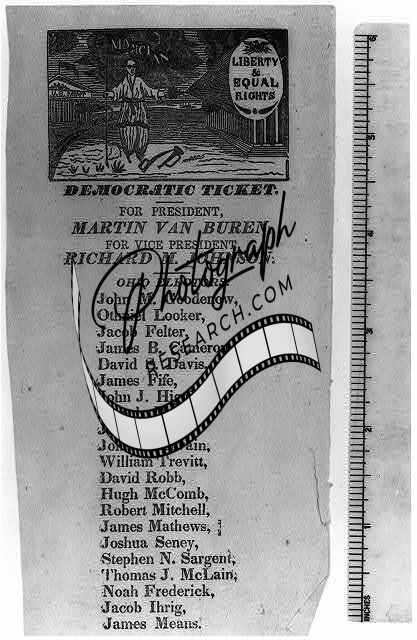 MAGICIAN
LIBERTY
&
EQUAL
RIGHTS
DEMOCRATIC TICKET.
FOR PRESIDENT,
MARTIN VAN BUREN
FOR VICE PRESIDENT,
RICHARD M. JOHNSON.
OHIO ELECTORS.
John M. Goodenow,
Othniel Looker,
Jacob Felter,
James B. Cameron
David S. Davis,
James Fife,
John J. Hig
William Trevitt,
David Robb,
Hugh McComb,
Robert Mitchell,
James Mathews,
Joshua Seney,
Stephen N. Sargent,
Thomas J. McLain,
Noah Frederick,
Jacob Ihrig,
James Means.
Photograph
RESEARCH.COM
6
5
4
3
2
1
INCHES